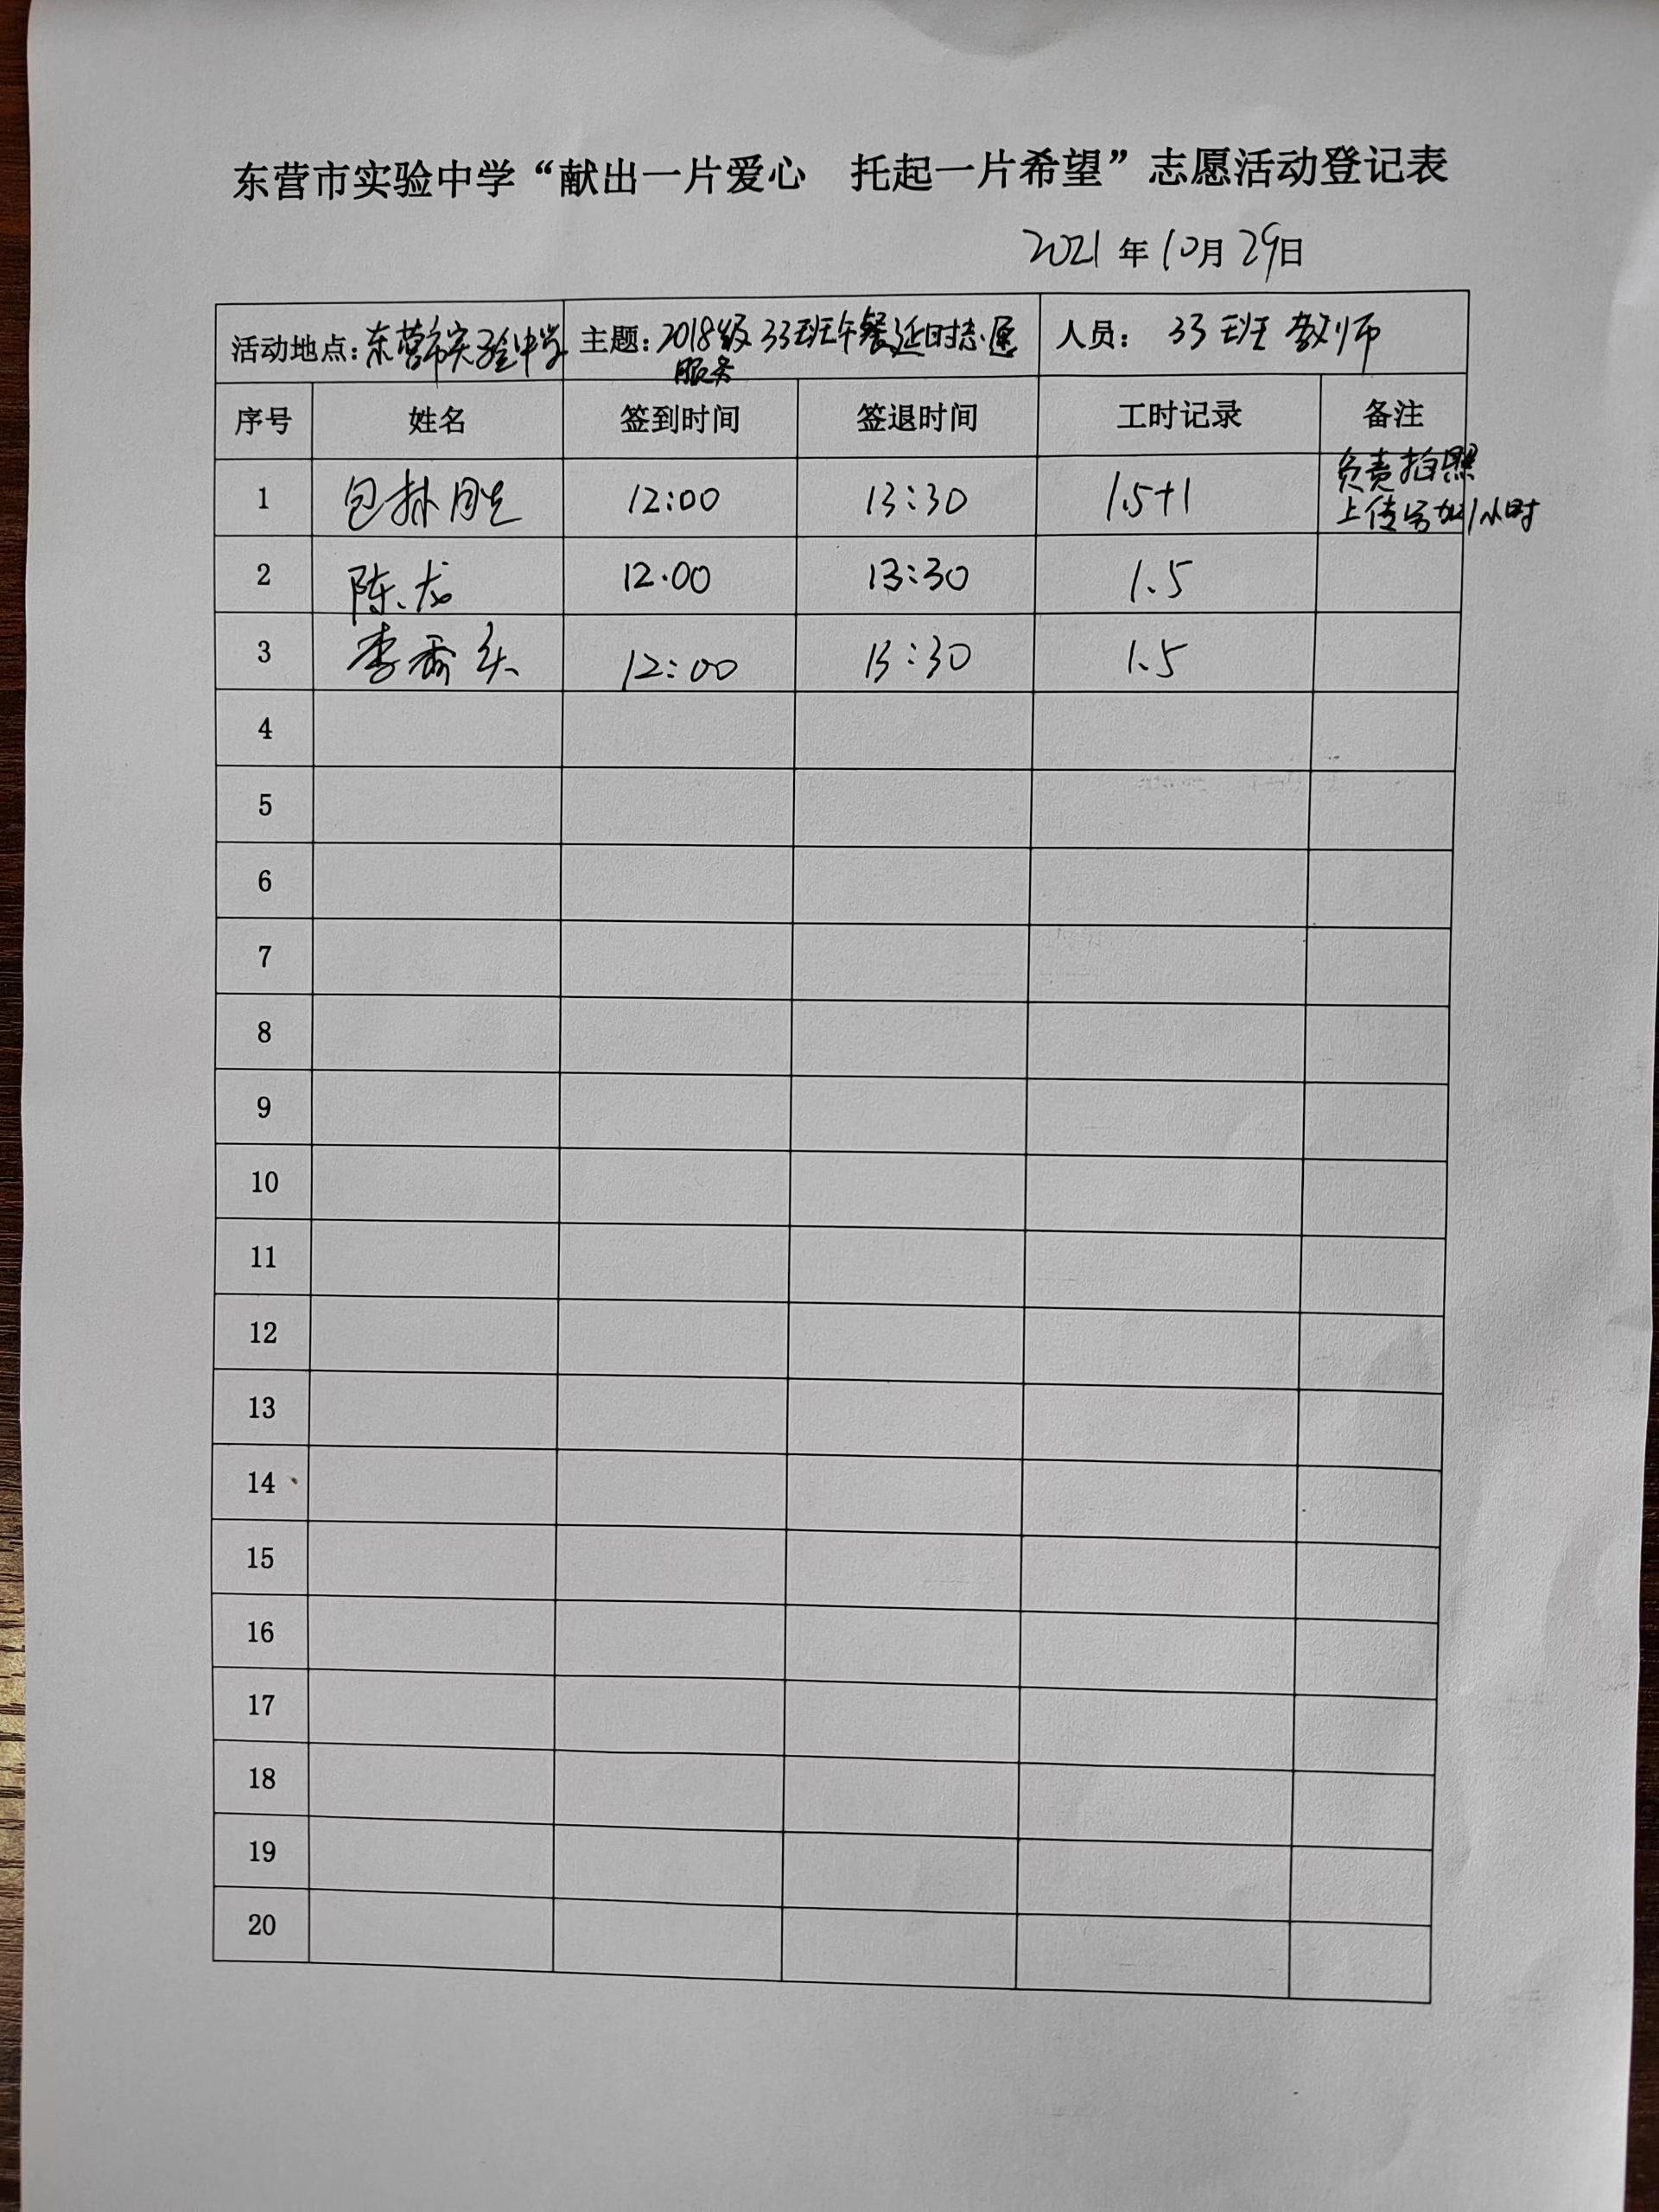 东营市实验中学“献出一片爱心 托起一片希望”志愿活动登记表
2021年10月29日
活动地点:东营市实验中学 主题:2018级33班午餐延时志愿服务 人员: 33班教师
序号 姓名 签到时间 签退时间 工时记录 备注
1 包林胜 12:00 13:30 1.5+1 负责拍照
上传另加1小时
2 陈龙 12:00 13:30 1.5
3 李 12:00 13:30 1.5
4
5
6
7
8
9
10
11
12
13
14
15
16
17
18
19
20